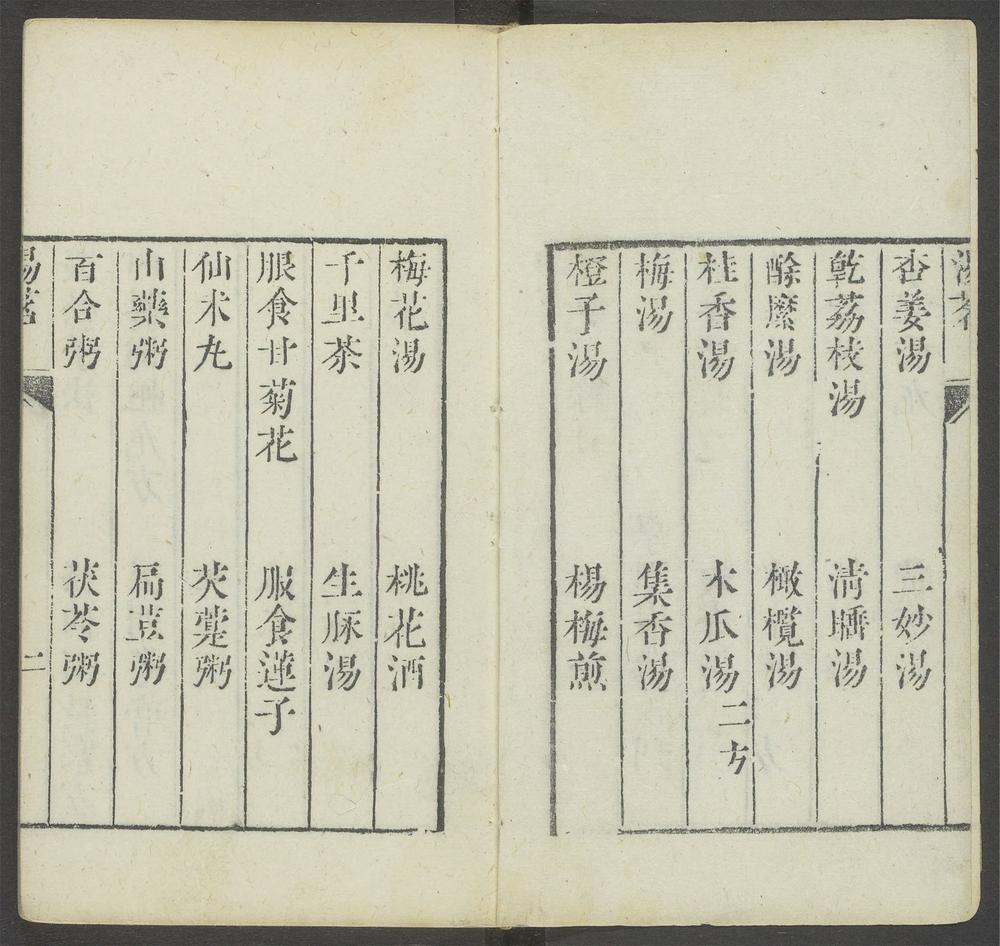 杏姜湯　三妙湯
乾荔枝湯　清𩡩湯
酴縻湯　橄欖湯
桂香湯　木瓜湯二方
梅湯　集杏湯
橙子湯　楊梅煎
梅花湯　桃花酒
千里茶　生脉湯
服食甘菊花　服食蓮子
仙术丸　芡薏粥
山藥粥　扁荳粥
百合粥　茯苓粥
二